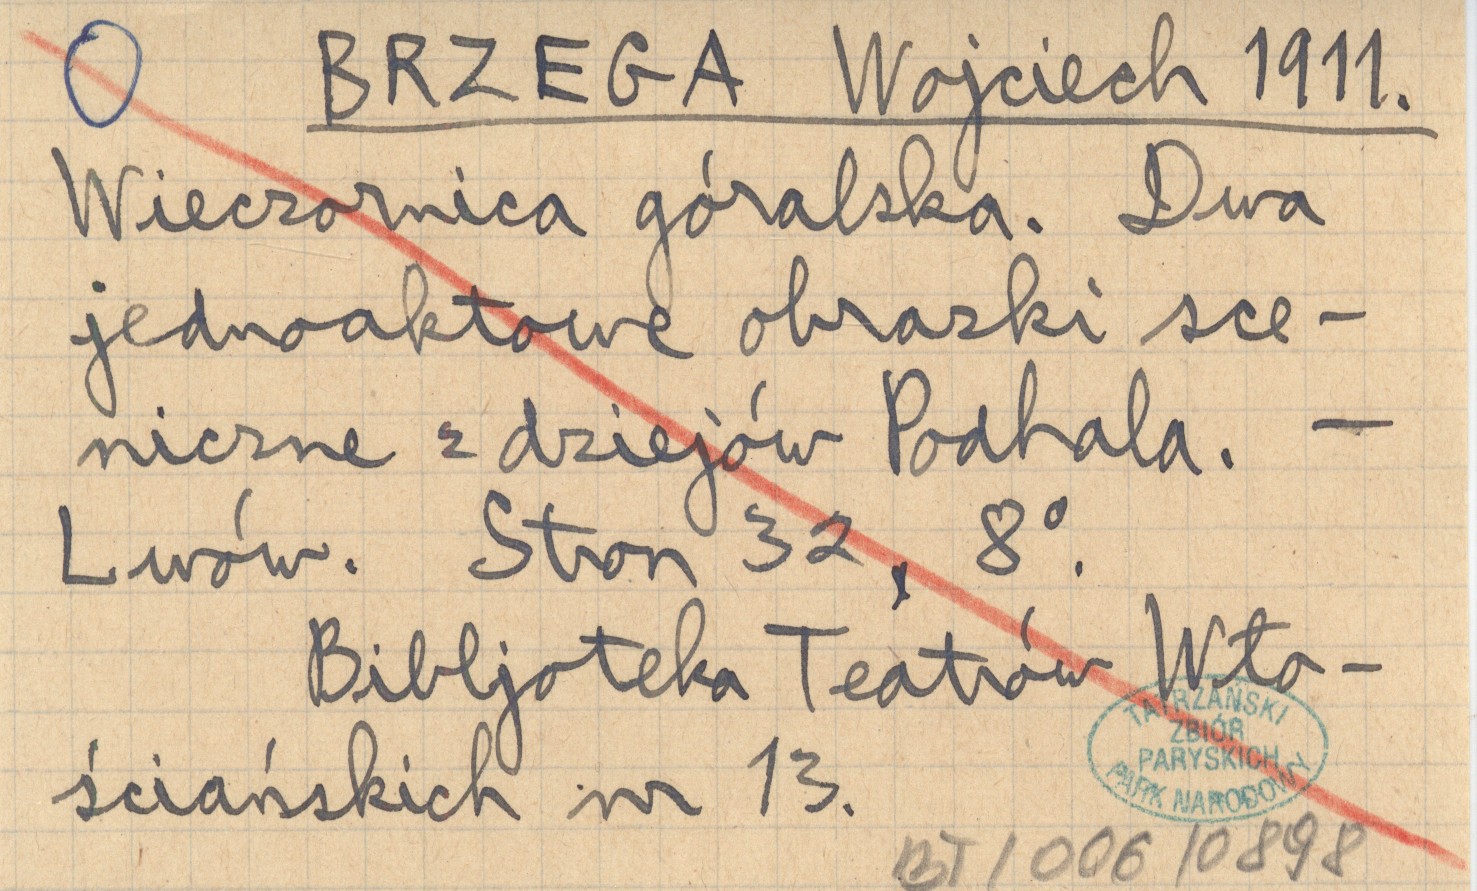 BRZEGA Wojciech 1911.
Wieczornica góralska. Dwa
jednoaktowe obrazki sce-
niczne z dziejów Podhala. —
Lwów. Stron 32, 8°.
Bibljoteka Teatrów Wło-
ściańskich nr 13.
TATRZAŃSKI
ZBIÓR
PARYSKICH
PARK NARODOWY
BT/006/0898